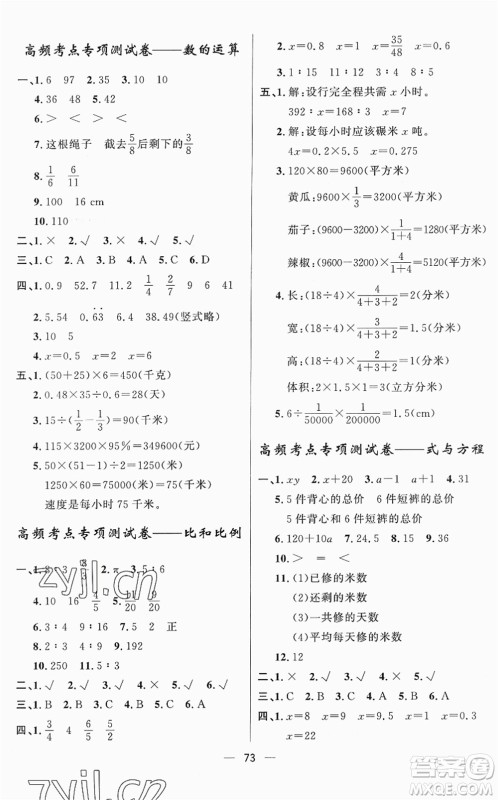 高频考点专项测试卷——数的运算
一、1. 6 97 2. 35 3. 10
4. 36 54 5. 42
6. > < > <
7. 这根绳子 截去5/8后剩下的3/8
8. 1/6 6/11
9. 100 16 cm
10. 110
二、1. × 2. √ 3. √ 4. × 5. √
三、1. B 2. A 3. C 4. B 5. C 6. D
四、1. 0.9 52.7 11.2 1/4 2/7 9 16
2. 5.4 0.63 0.905(竖式略)
3. 10 5
4. x=0.5 x=0
五、1. (50+25)×6=450(千克)
2. 0.48×35÷0.6=28(块)
3. 15÷(1/2-1/3)=90(千米)
4. 115×3200×95%=349600(元)
5. 50×(51-1)÷2=1250(米)
1250×60=75000(米)=75(千米)
速度是每小时 75 千米。
高频考点专项测试卷——比和比例
4. 10 16 4/5
7. 1∶3 8. 9∶2 9. 122 正
10. 250 11. 5∶4
二、1. √ 2. × 3. √ 4. √ 5. √
三、1. B 2. A 3. A 4. B 5. C
四、1. 3/4 4 6/5 5/2
2. x=0.5 x=0.8 x=35/48
3. 1∶15 1∶4 1∶9
五、1. 解:设行完全程共需 x 小时。
392∶x=168∶3 x=7
2. 解:设每小时应该碾米 x 吨。
4x=0.2×5.5 x=0.275
3. 120×80=9600(平方米)
黄瓜:9600×1/3=3200(平方米)
茄子:(9600-3200)×1/(1+4)=1280(平方米)
辣椒:(9600-3200)×4/(1+4)=5120(平方米)
4. 长:(18÷4)×4/(4+3+2)=2(分米)
宽:(18÷4)×3/(4+3+2)=1.5(分米)
高:(18÷4)×2/(4+3+2)=1(分米)
体积:2×1.5×1=3(立方分米)
5. 6÷1/50000×1/200000=1.5(cm)
高频考点专项测试卷——式与方程
一、1. xy 2. x+0.3 3. a-1 a+1 4. 31
5. 5 件背心的总价 6 件短裤的总价
5 件背心和 6 件短裤的总价
6. 120+10a 7. 24.5 8. 15 9. 4
10. > = < =
11. (1)已修的米数
(2)还剩的米数
(3)一共修的天数
(4)平均每天修的米数
12. 12
二、1. √ 2. × 3. √ 4. √ 5. ×
三、1. C 2. B 3. A 4. B 5. C
四、1. x=9 x=1.5 x=0.1
x=22
73
zyjl.cn
zyjl.cn
作业帮